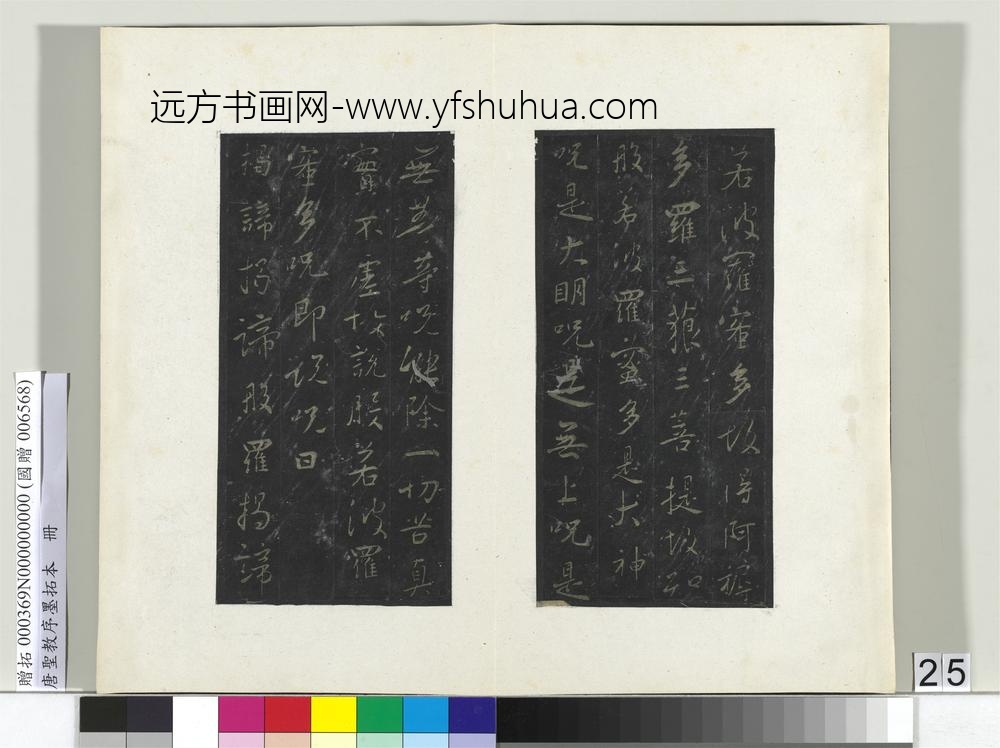 远方书画网-www.yfshuhua.com
若波羅蜜多故得阿耨
多羅三藐三菩提故知
般若波羅蜜多是大神
呪是大明呪是無上呪是
無等等呪能除一切苦真
實不虛故說般若波羅
蜜多呪即說呪曰
揭諦揭諦般羅揭諦
贈拓 000369N000000000 (國贈 006568)
唐聖教序墨拓本 冊
25